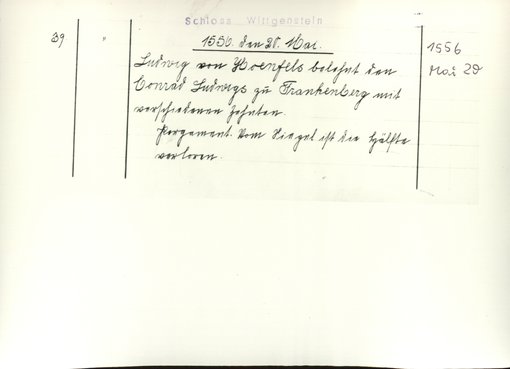 Schloss Wittgenstein
39 "
1556. den 20. Mai.
1556
Mai 20
Ludwig von Hoenfels belehnt den
Conrad Ludwigs zu Frankenberg mit
verschiedenen Zehnten.
Pergament. Vom Siegel ist die Hälfte
verloren.